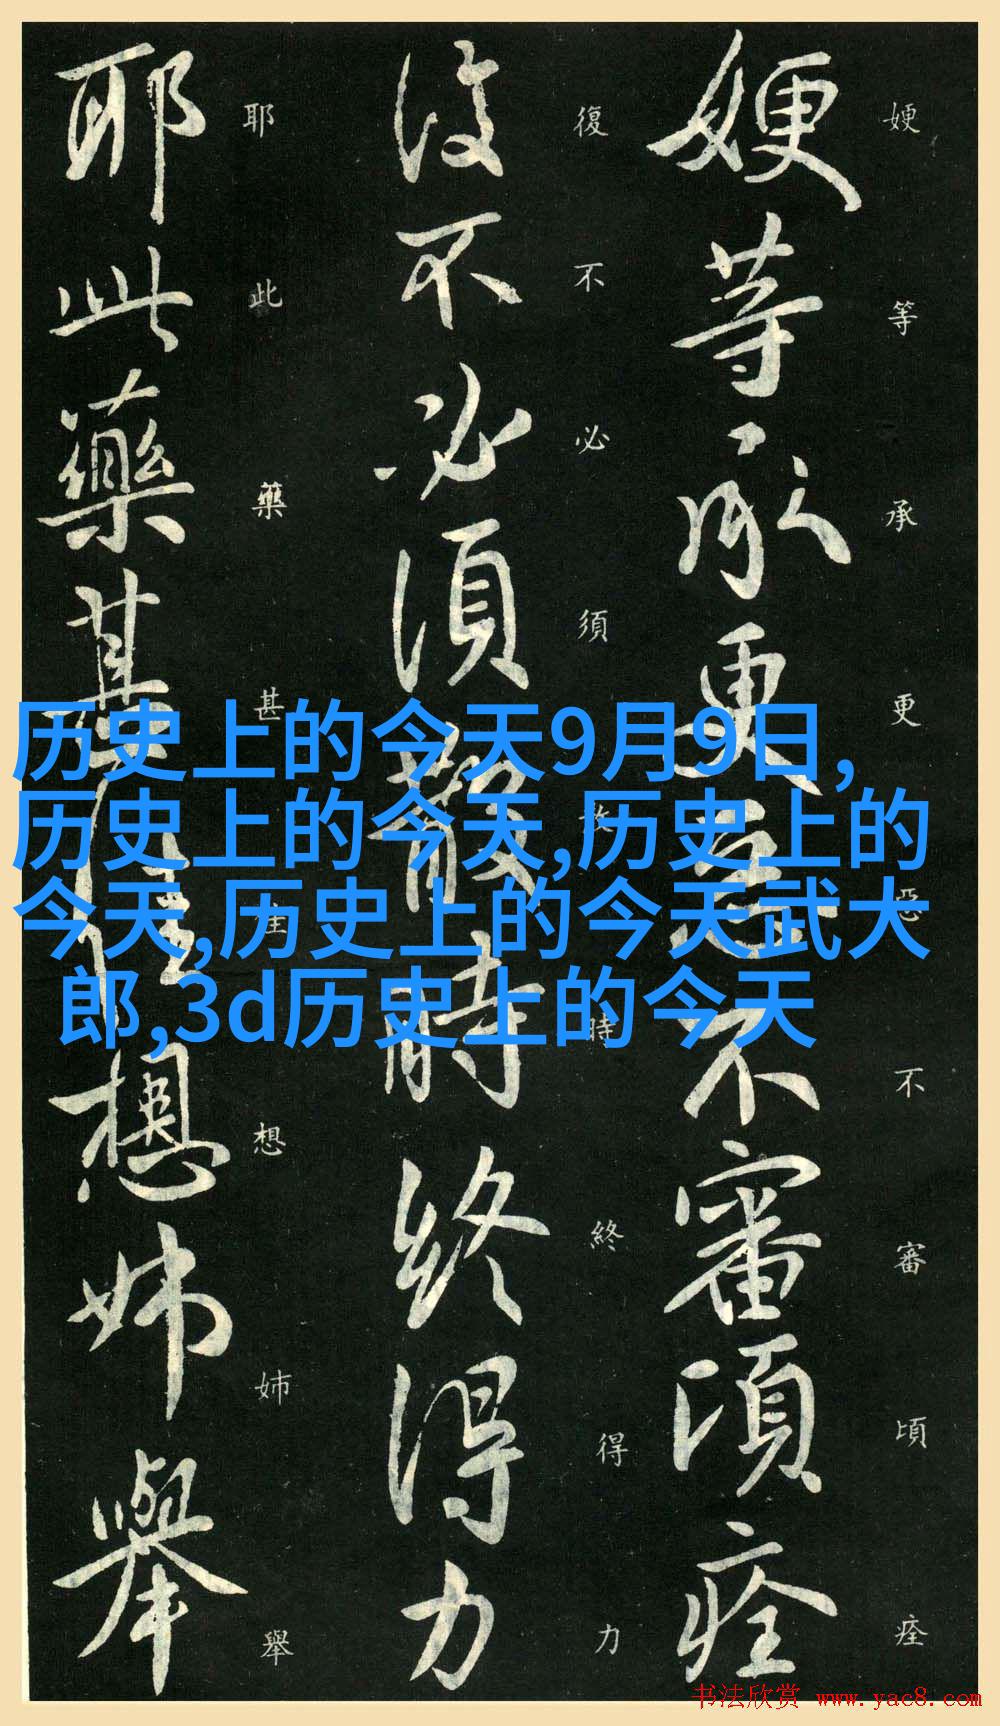 嫂等承更惡不審頃痊
嫂等承更惡不審頃痊
復不必須散時終得力
復不必須散時終得力
耶此藥甚佳想姊舉
耶此藥甚佳想姊舉
历史上的今天9月9日,
历史上的今天,历史上的
今天,历史上的今天武大
郎,3d历史上的今天
书法欣赏 www.yac8.com